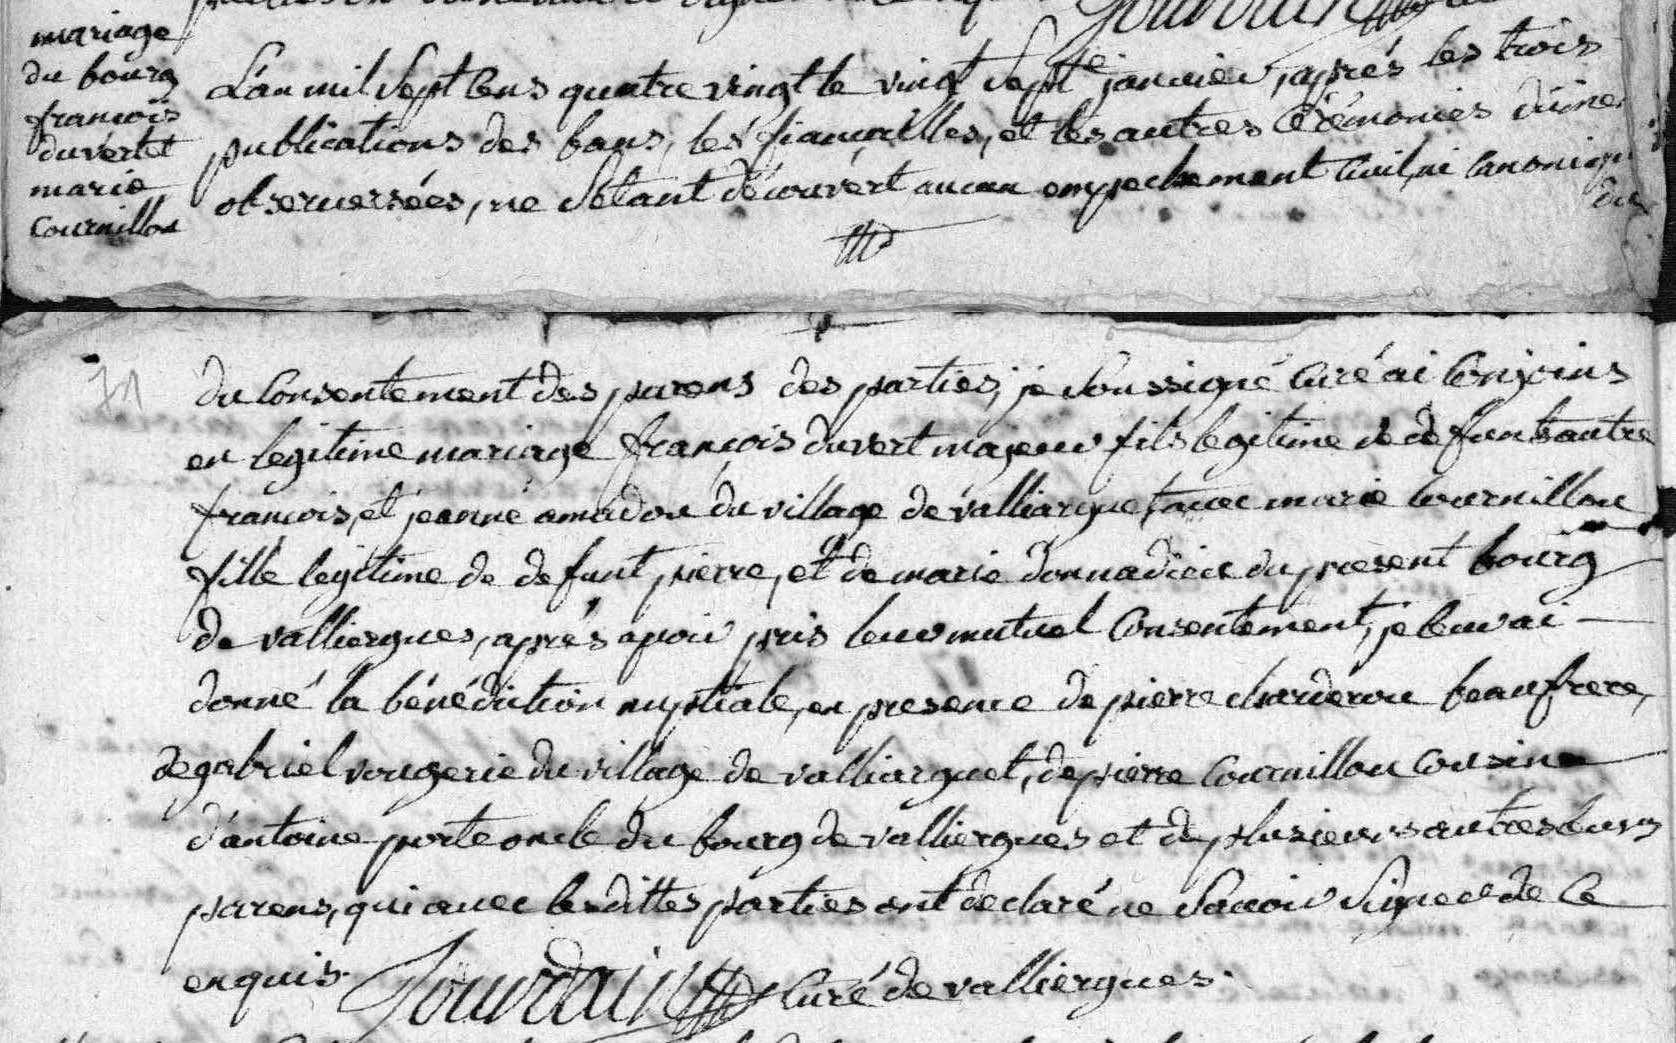 mariage
du bourg
françois
duvert et
marie
Cournillon
L'an mil Sept Cens quatre vingt le vingt Septe janvier, après les trois
publications des bans, les fiançailles, et les autres Cérémonies
observersées, ne S'etant découvért aucun empechement Civil, ni Canonique
du
71
du Consentement des parens des parties, je Soussigné Curé ai Conjoins
en legitime mariage françois duvert majeur fils legitime de defunt autre
françois, et jeanne amadon du village de valliarguet, avec marie Cournillon
fille legitime de defunt pierre, et de marie donnadieu du present bourg
de valliergues, après avoir pris leur mutuel Consentement, je leur ai
donné la bénédiction nuptiale, en presence de pierre charderou beaufrere,
de gabriel vougerie du village de valliarguet, de pierre Cournillon Cousin
d'antoine porte oncle du bourg de valliergues et de plusieurs autres leurs
parens, qui avec lesdittes parties ont declaré ne Savoir Signer de Ce
enquis. Jourdain Curé de valliergues.